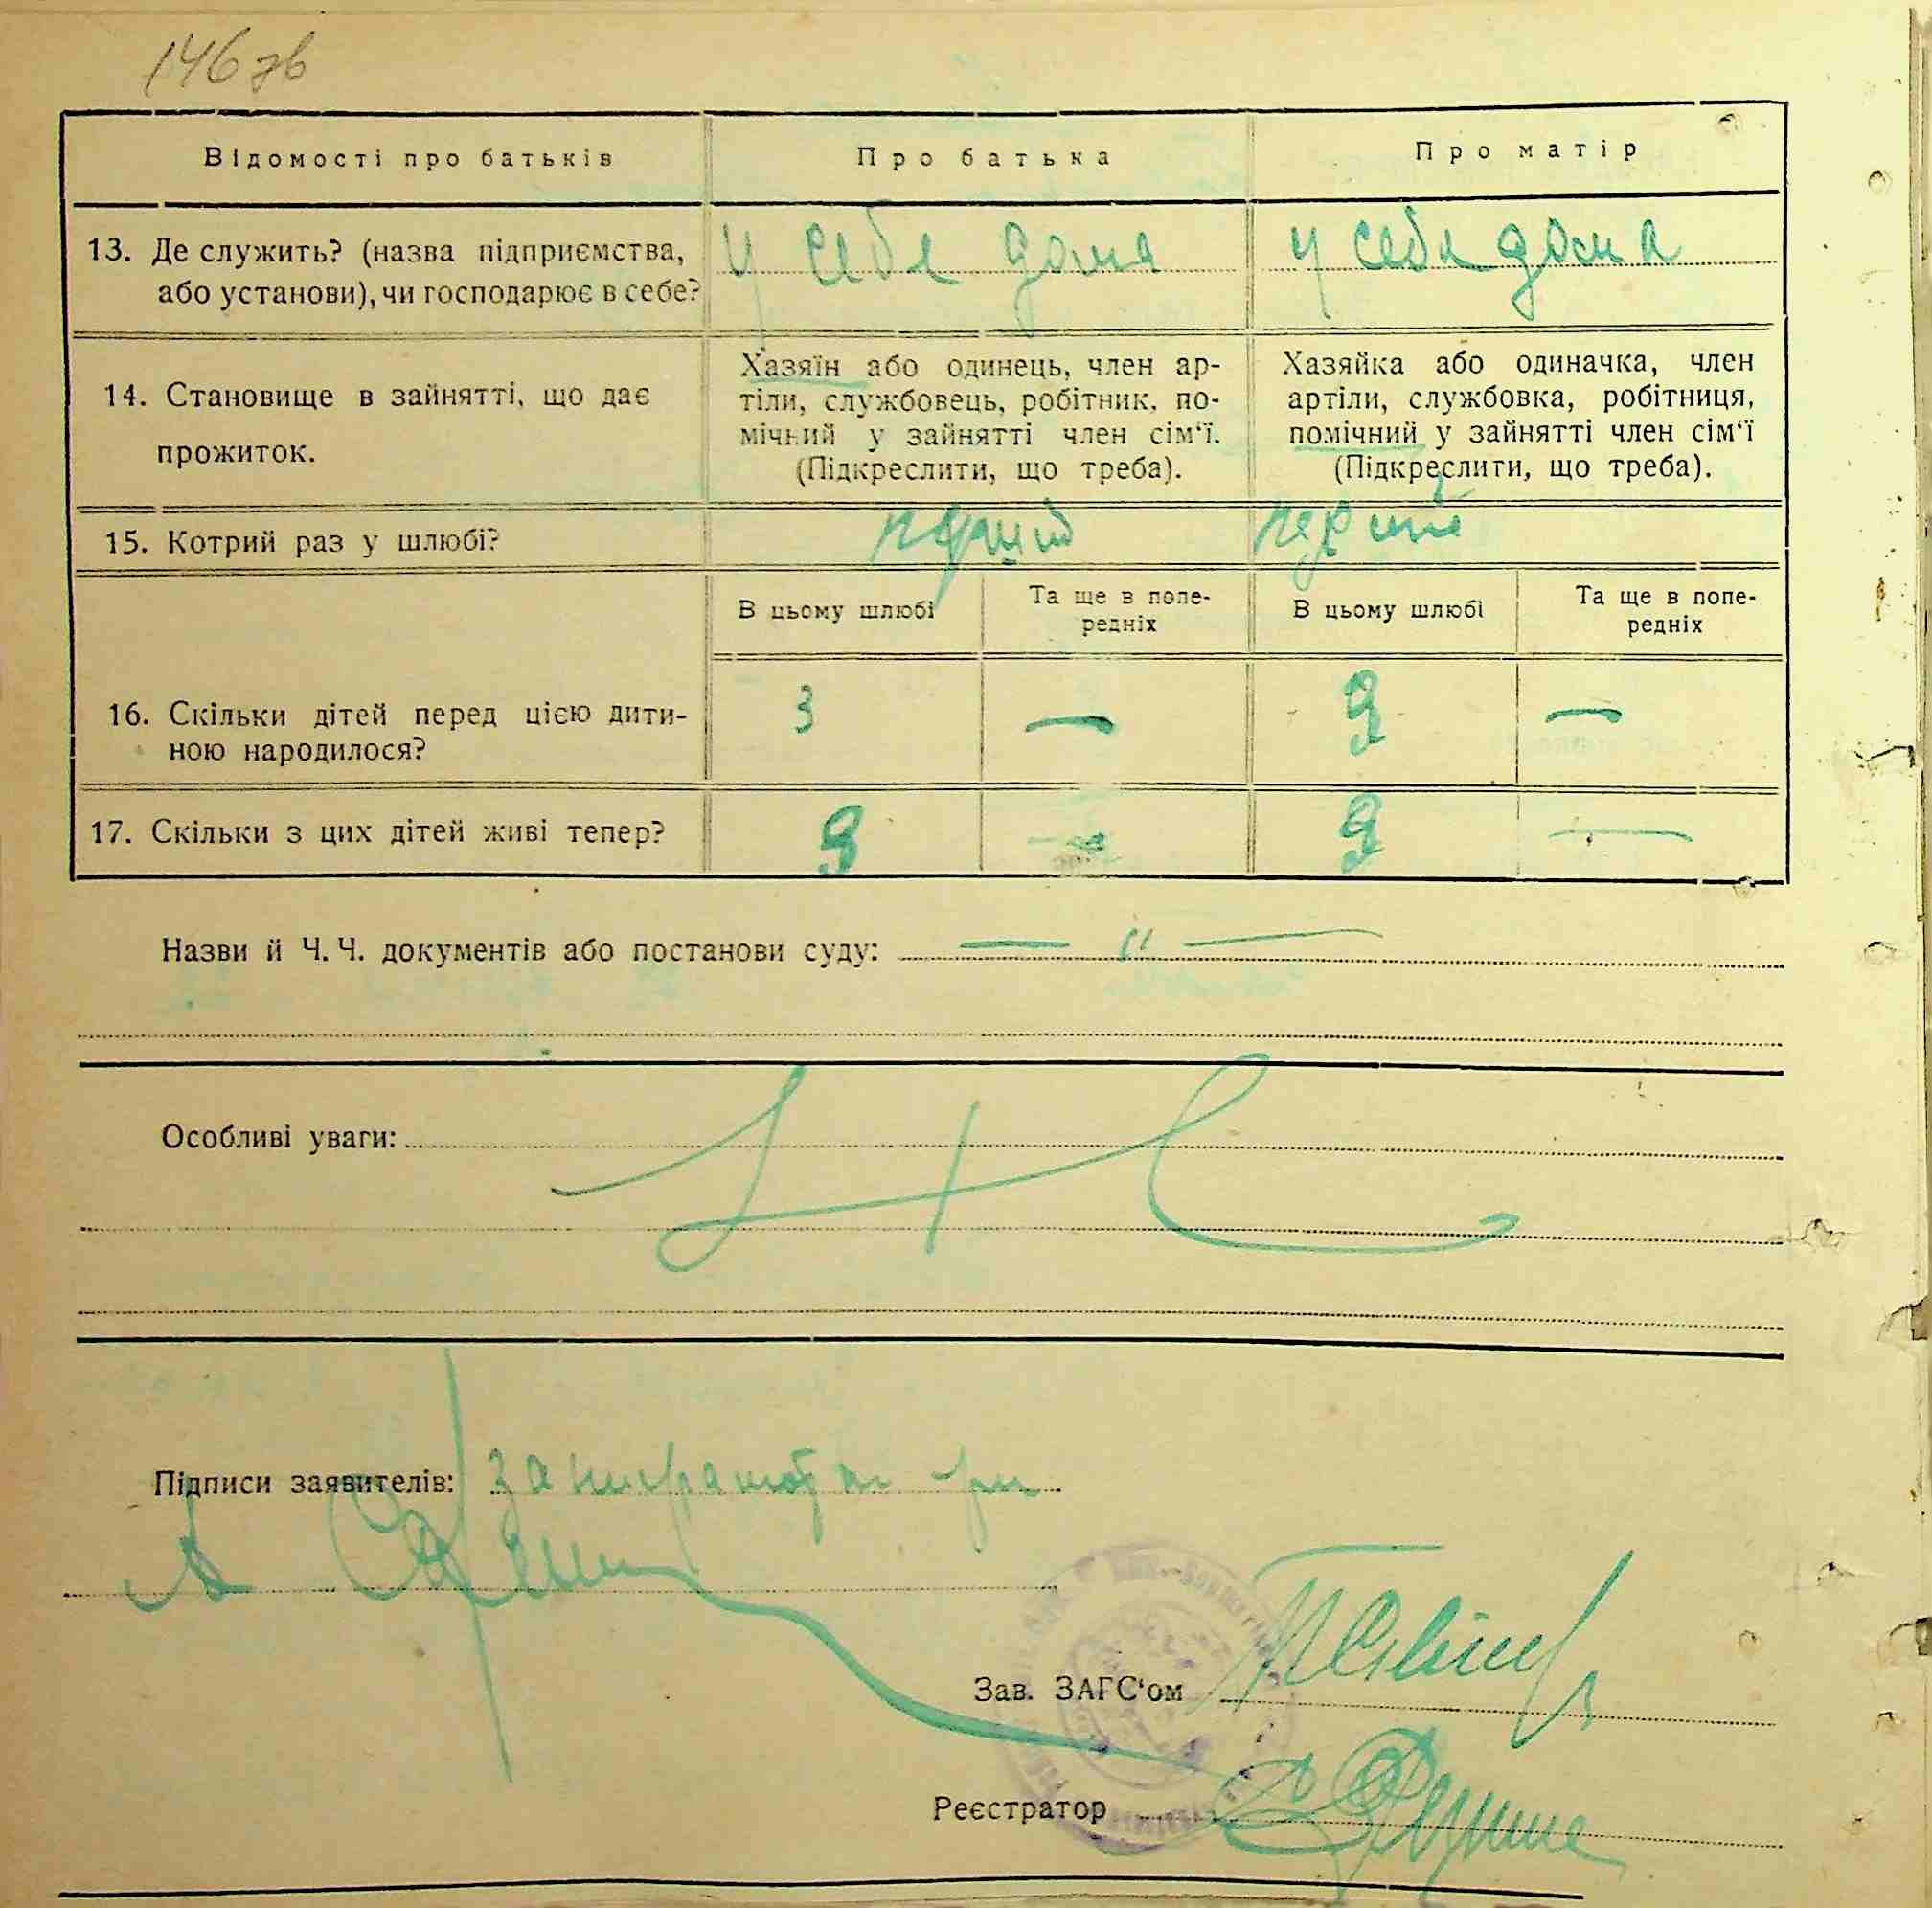 146 зв
Відомості про батьків
Про батька
Про матір
13. Де служить? (назва підприємства,
або установи), чи господарює в себе?
у себе дома
у себе дома
14. Становище в зайнятті, що дає
прожиток.
Хазяїн або одинець, член ар-
тіли, службовець, робітник, по-
мічний у зайнятті член сім‘ї.
(Підкреслити, що треба).
Хазяйка або одиначка, член
артіли, службовка, робітниця,
помічний у зайнятті член сім‘ї
(Підкреслити, що треба).
15. Котрий раз у шлюбі?
перший
В цьому шлюбі
Та ще в попе-
редніх
В цьому шлюбі
Та ще в попе-
редніх
16. Скільки дітей перед цією дити-
ною народилося?
3
—
—
17. Скільки з цих дітей живі тепер?
—
—
Назви й Ч. Ч. документів або постанови суду: — " —
Особливі уваги:
Підписи заявителів:
Зав. ЗАГС‘ом
Реєстратор